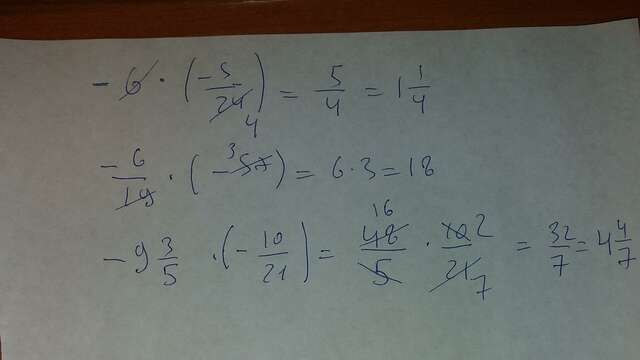 -6 · (-5/24 4) = 5/4 = 1 1/4
-6/19 · (-57 3) = 6·3=18
-9 3/5 · (-10/21) = 48 16/5 · 10 2/21 7 = 32/7 = 4 4/7